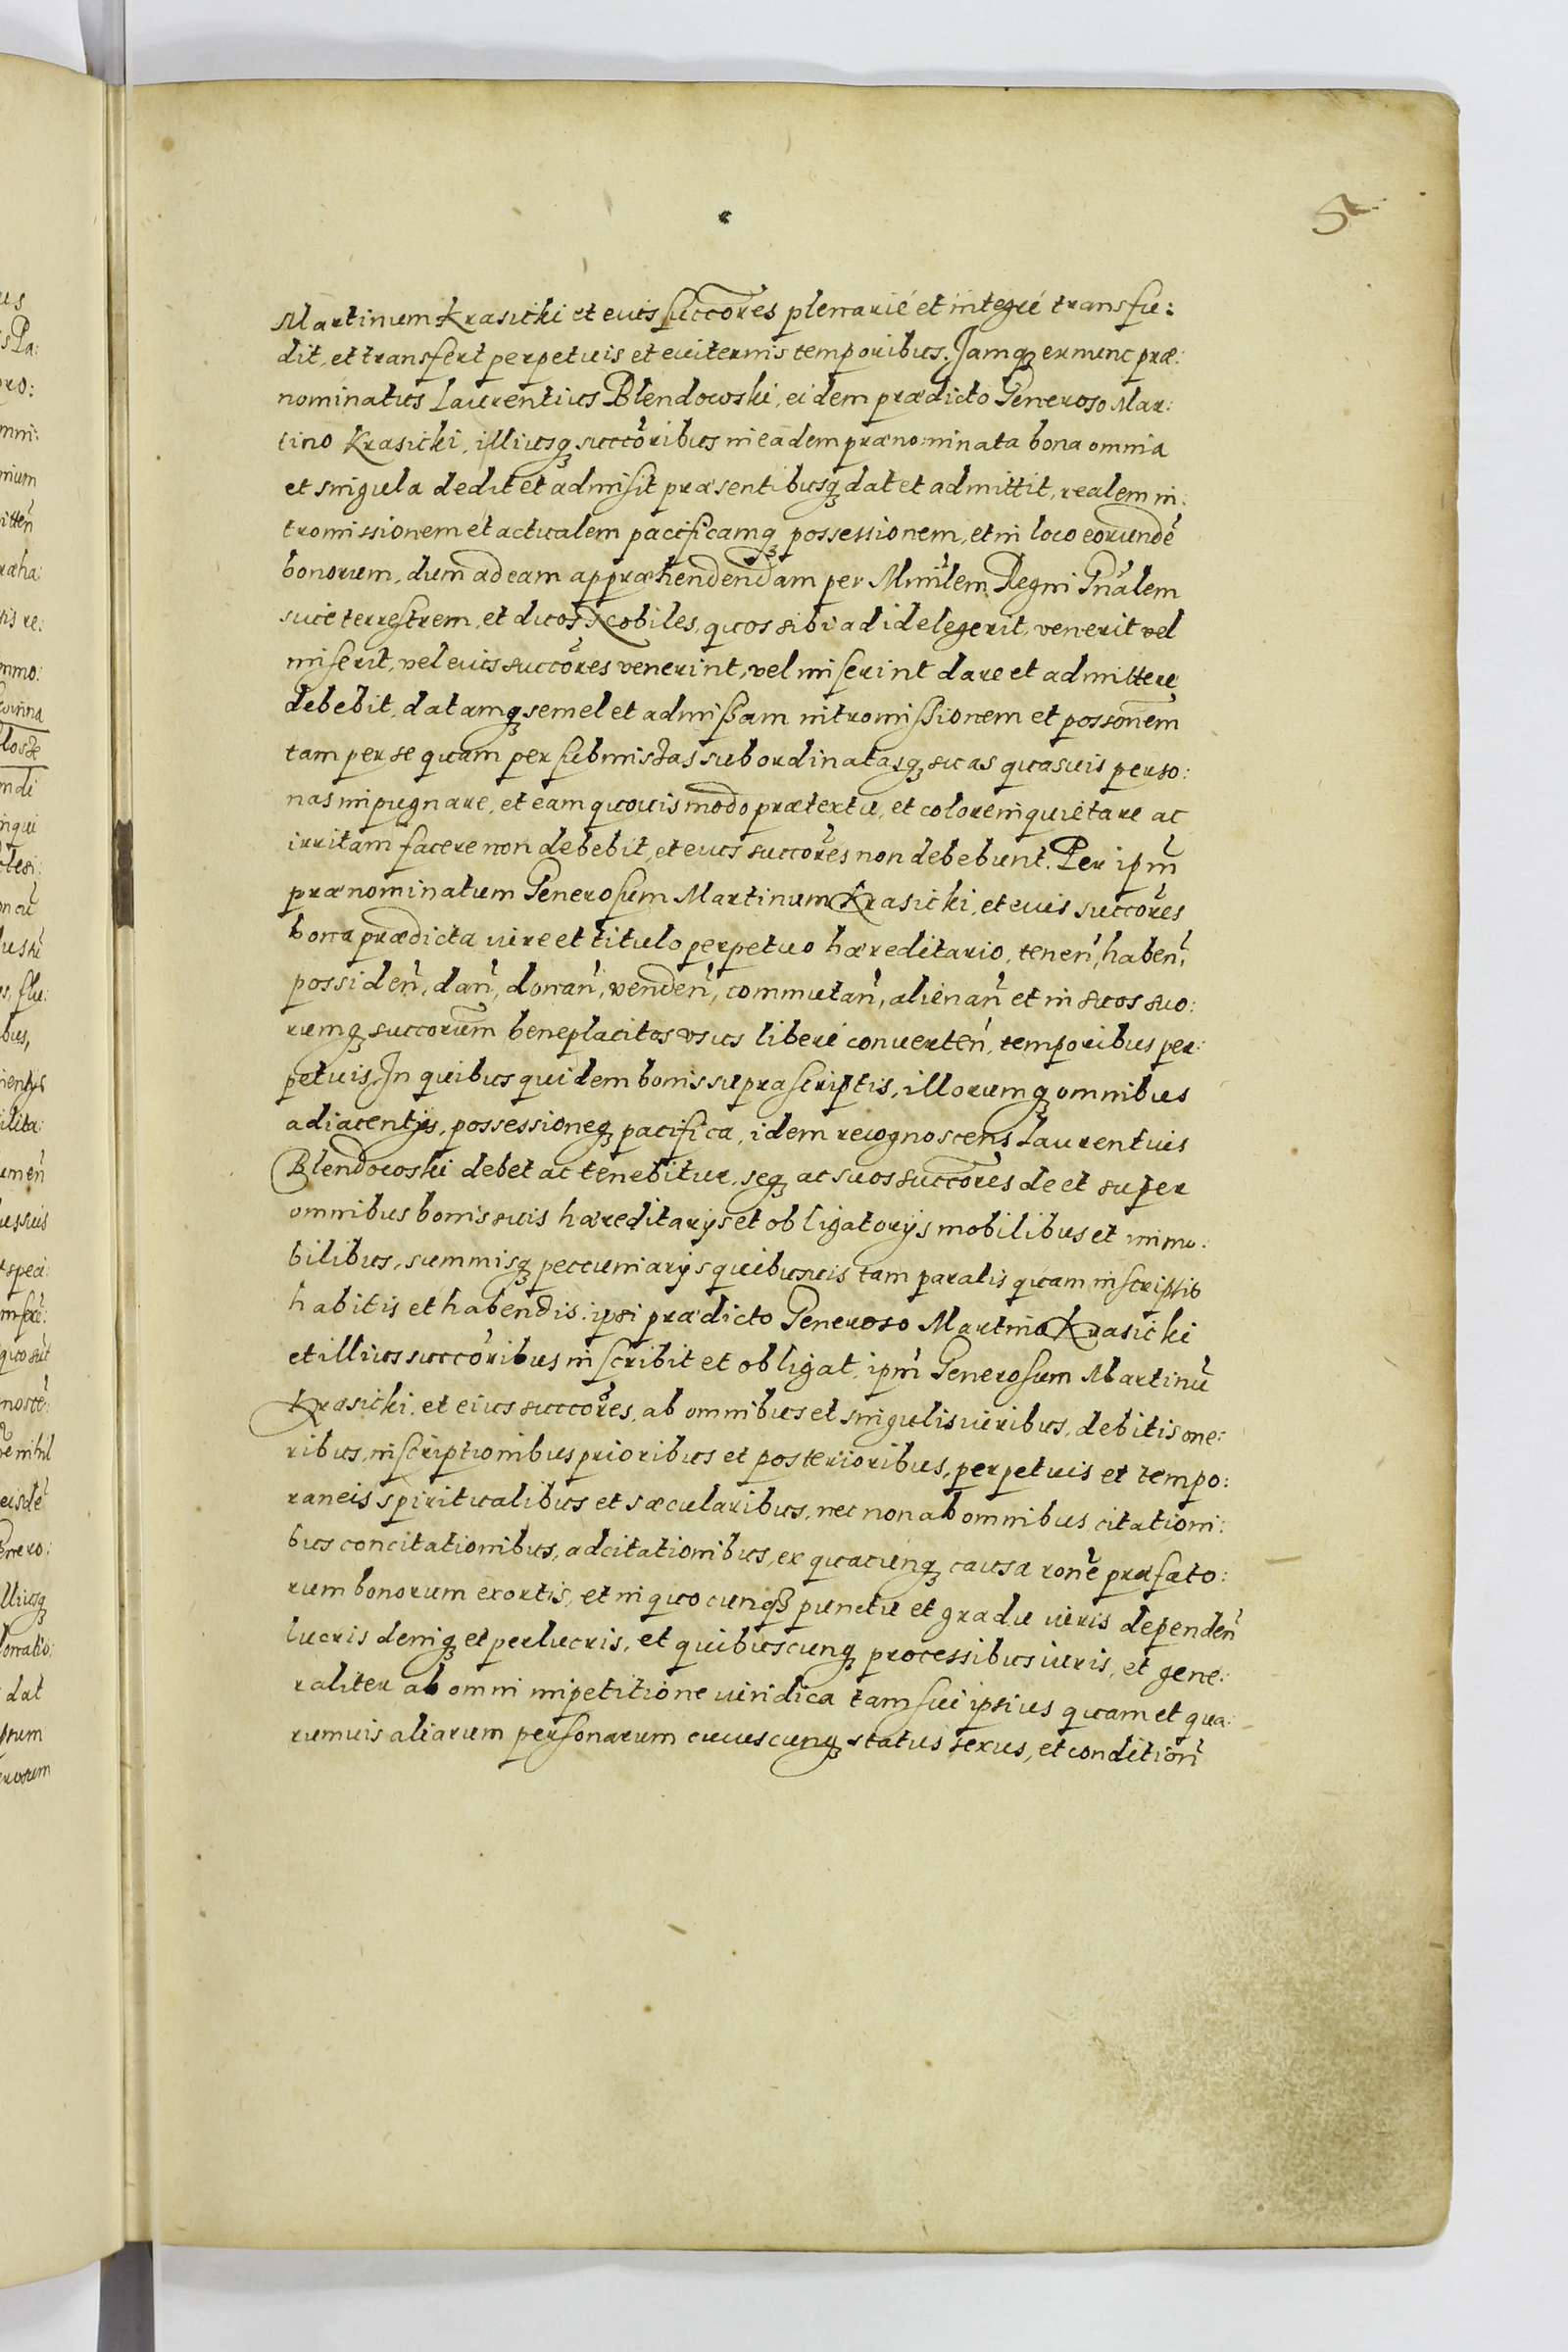 5
Martinum Krasicki et eius succores plenarié et integré transfu:
dit, et transfert perpetuis et euiternis temporibus. Jamq; ex nunc præ:
nominatus Laurentius Blendowski, eidem prædicto Generoso Mar:
tino Krasicki, illiusq; succoribus in eadem prænominata bona omnia
et singula dedit et admisit præsentibusq; dat et admittit, realem in:
tromissionem et actualem pacificamq; possessionem, et in loco eorundē
bonorum, dum ad eam appræhendendam per Minrlem Regni Gnalem
siue terrestrem, et duos Nobiles, quos sibi ad id elegerit, venerit vel
miserit, vel eius succores venerint, vel miserint dare et admittere
debebit, datamq; semel et admissam intromissionem et possonem
tam per se quam per submissas subordinatasq; suas quasuis perso:
nas impugnare, et eam quouis modo prætextu, et colore inquietare ac
irritam facere non debebit, et eius succores non debebunt. Per ipm̃
prænominatum Generosum Martinum Krasicki, et eius succores
bona prædicta iure et titulo perpetuo hæreditario, teneñ, habeñ,
possideñ, dañ, donañ, vendeñ, commutañ, alienañ et in suos suo:
rumq; succorum beneplacitos vsus liberé conuerteñ, temporibus per:
petuis, In quibus quidem bonis suprascriptis, illorumq; omnibus
adiacentijs, possessioneq; pacifica, idem recognoscens Laurentius
Blendowski debet ac tenebitur, seq; ac suos succores de et super
omnibus bonis suis hæreditarijs et obligatorijs mobilibus et immo:
bilibus, summisq; pecuniarijs quibusuis tam paratis quam inscriptis
habitis et habendis: ipsi prædicto Generoso Martino Krasicki
et illius succoribus inscribit et obligat, ipm̃ Generosum Martinū
Krasicki, et eius succores, ab omnibus et singulis iuribus, debitis one:
ribus, inscriptionibus prioribus et posterioribus, perpetuis et tempo:
raneis spiritualibus et sæcularibus, nec non ab omnibus citationi:
bus concitationibus, adcitationibus, ex quacunq; causa rone præfato:
rum bonorum exortis, et in quocunq; punctu et gradu iuris dependeñ
lucris deniq; et perlucris, et quibuscunq; processibus iuris, et gene:
raliter ab omni impetitione iuridica tam sui ipsius quam et qua:
rumuis aliarum personarum cuiuscunq; status sexus, et conditioñ